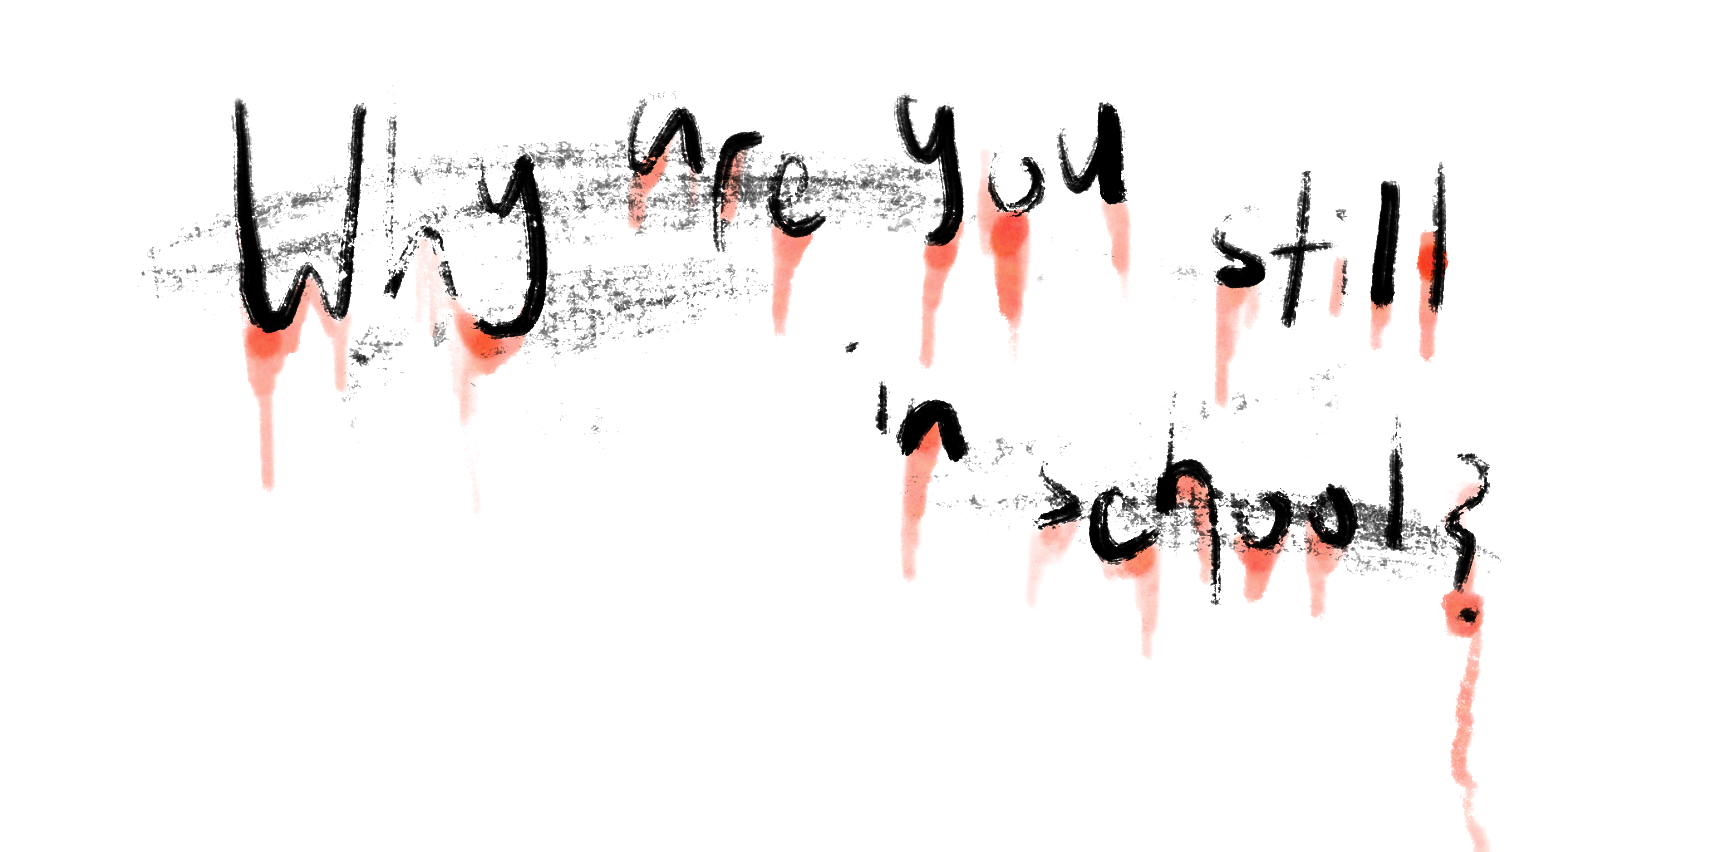 Why are you still
in school?